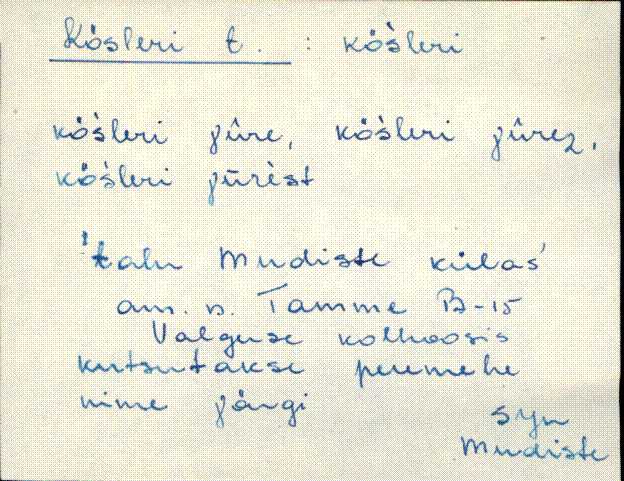 Kösleri t. : köśleri
köśleri jûre, köśleri jûrez,
köśleri jūrest
'talu Mudiste külas'
am. n. Tamme B-15
Valguse kolhoosis
kutsutakse peremehe
nime järgi
Syn
Mudiste